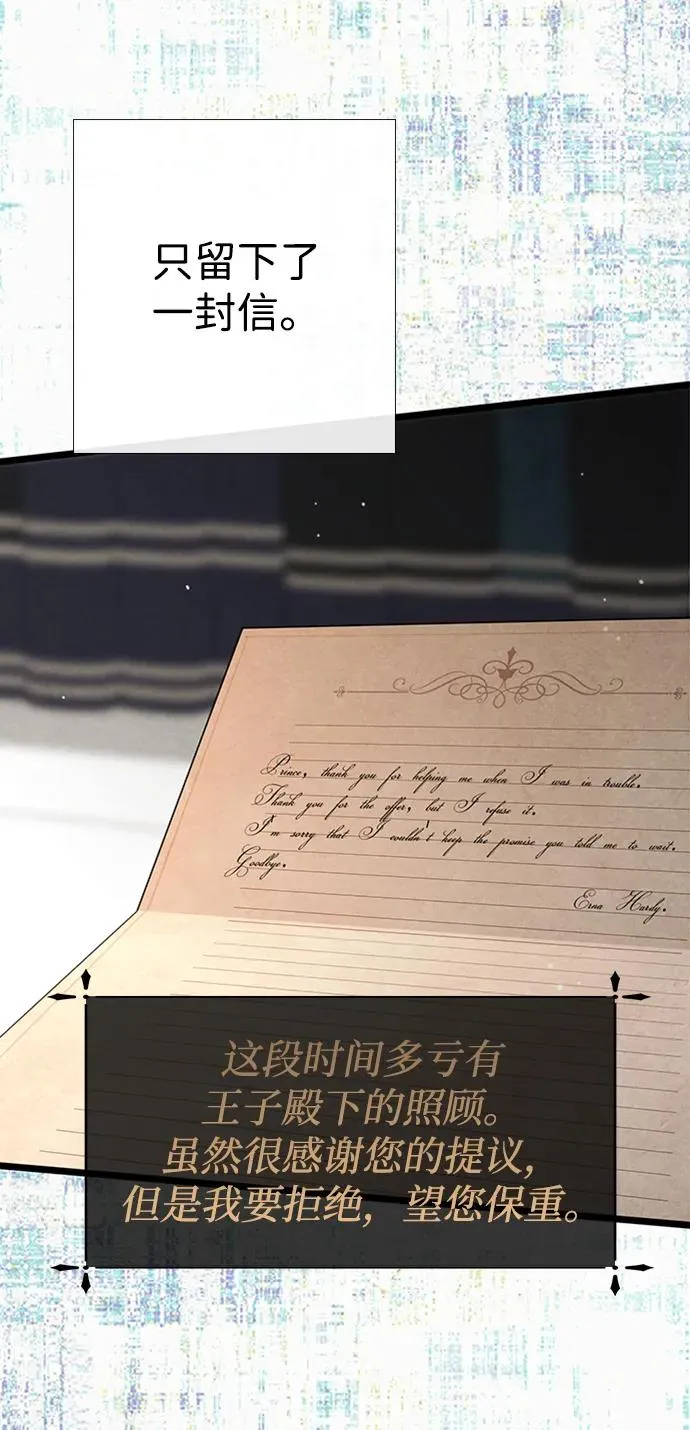 只留下了
一封信。
Prince, thank you for helping me when I was in trouble.
Thank you for the offer, but I refuse it.
I'm sorry that I couldn't keep the promise you told me to wait.
Goodbye.
Erna Hardy.
这段时间多亏有
王子殿下的照顾。
虽然很感谢您的提议,
但是我要拒绝, 望您保重。